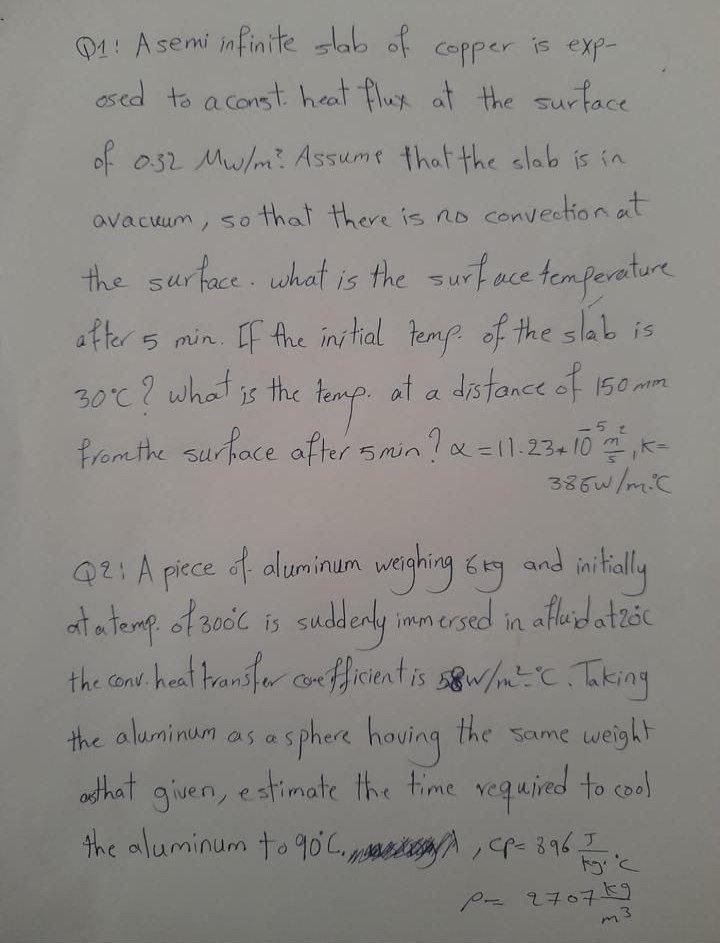 Q1: A semi infinite slab of copper is exp-
osed to a const. heat flux at the surface
of 0.32 Mw/m². Assume that the slab is in
a vacuum, so that there is no convection at
the surface. what is the surface temperature
after 5 min. If the initial temp. of the slab is
30°C? what is the temp. at a distance of 150 mm
from the surface after 5 min? α = 11.23*10⁻⁵ m²/s, K=
386 w/m.°C
Q2: A piece of aluminum weighing 6 kg and initially
at a temp. of 300°C is suddenly immersed in a fluid at 20°C
the conv. heat transfer coefficient is 58 w/m².°C. Taking
the aluminum as a sphere having the same weight
as that given, estimate the time required to cool
the aluminum to 90°C. , CP= 896 J/kg.°C
ρ= 2707 kg/m³